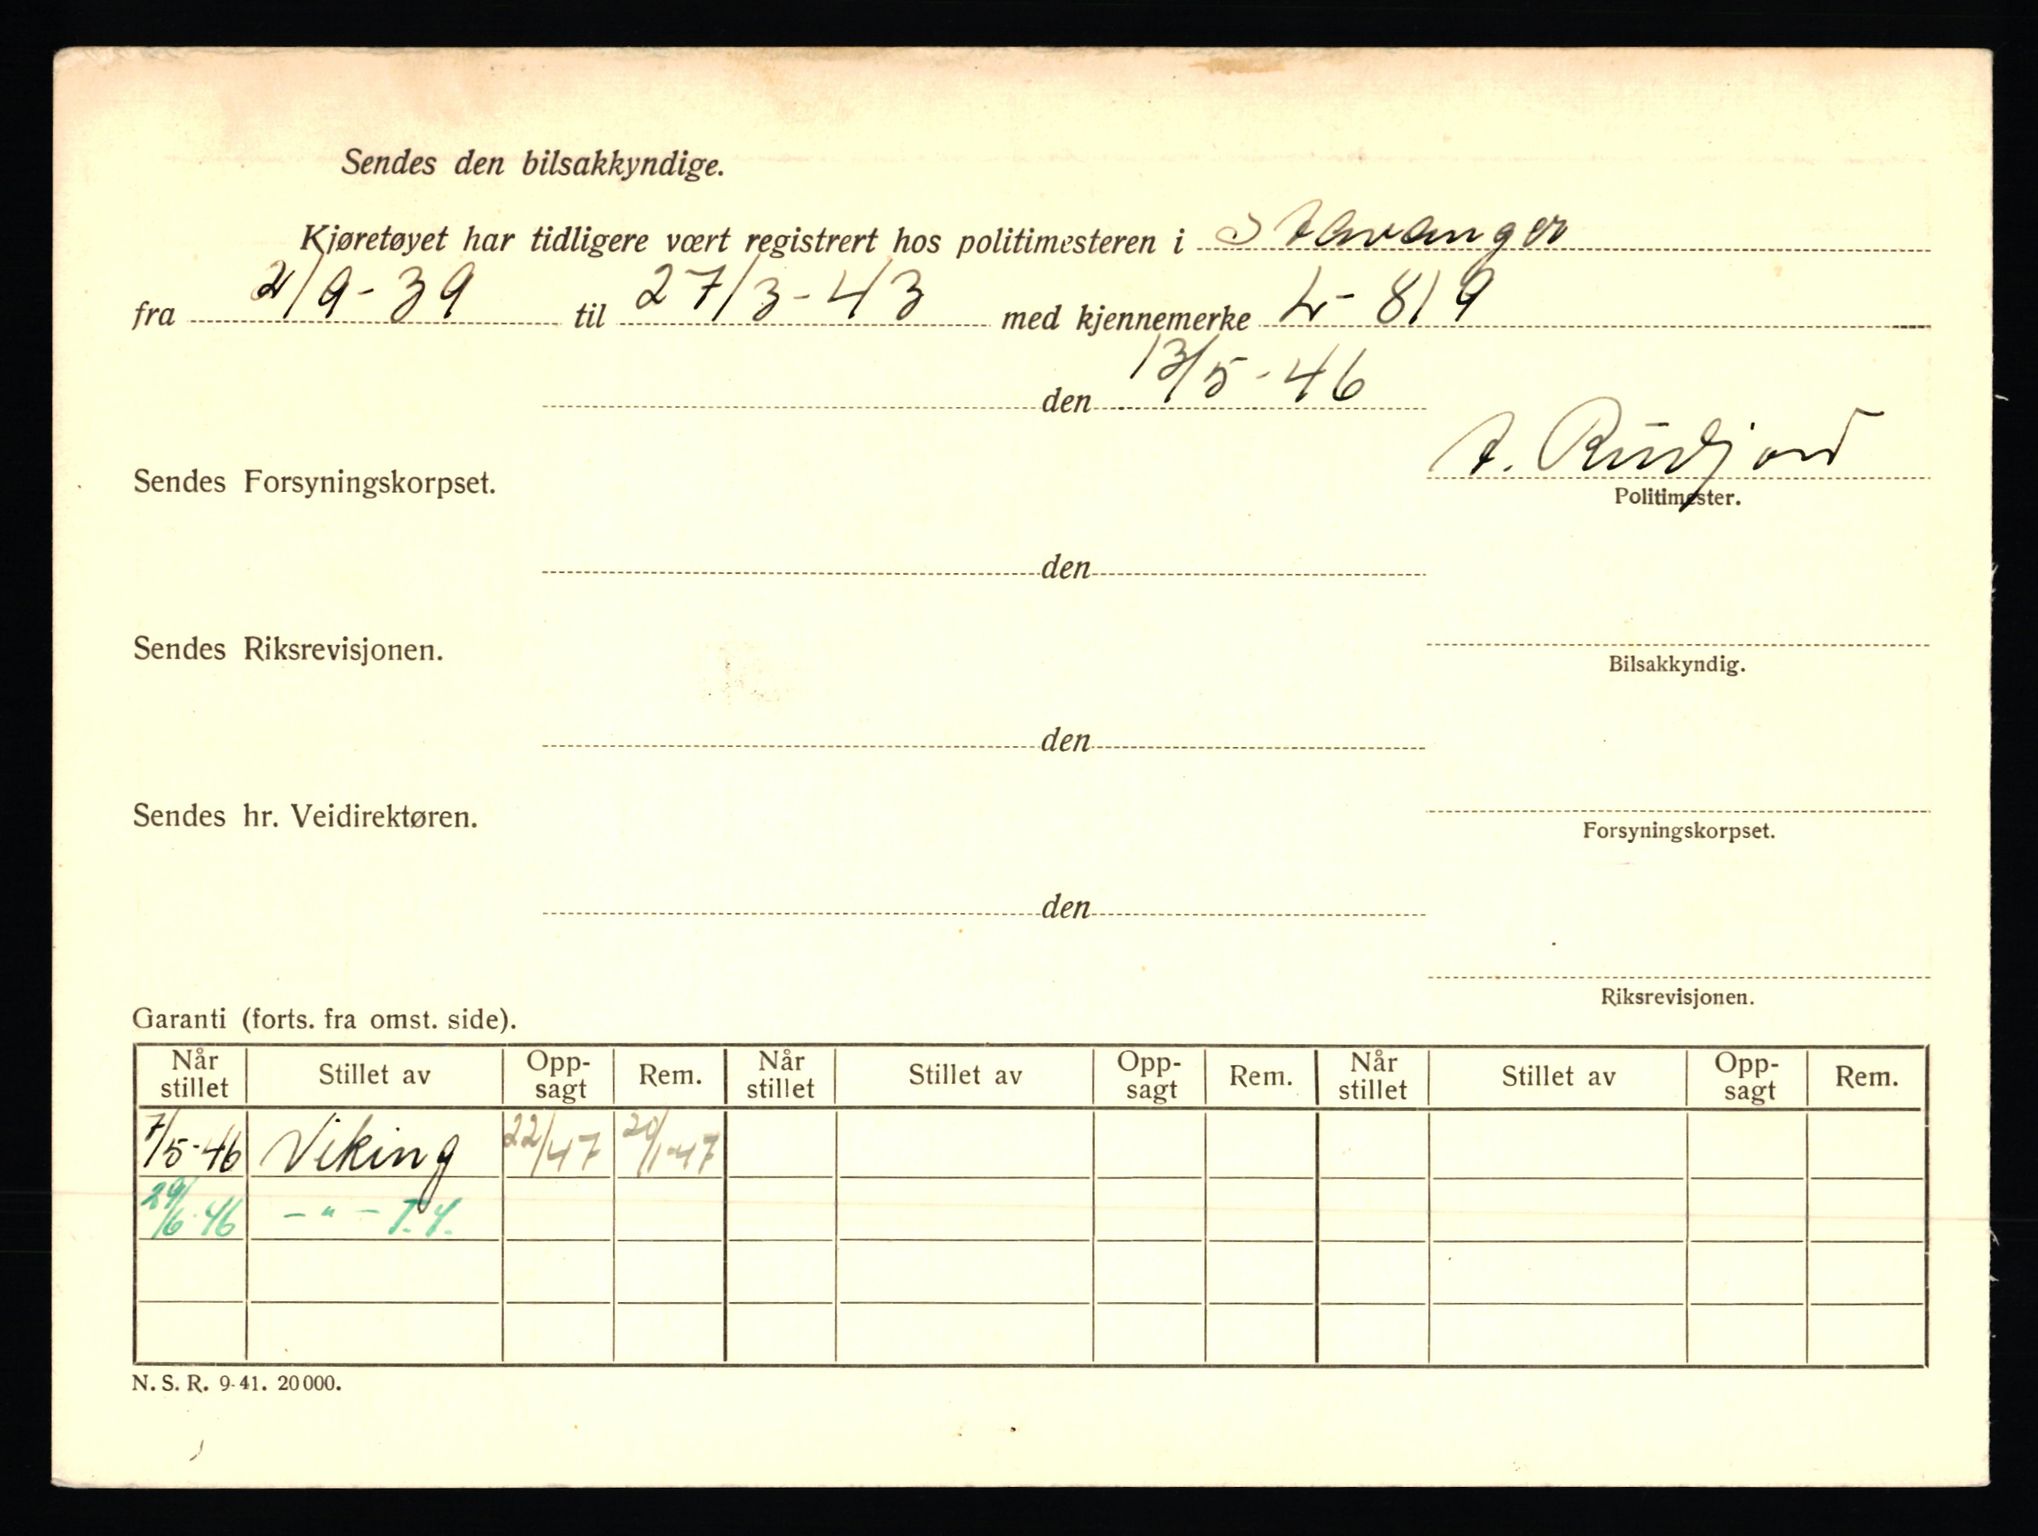 Sendes den bilsakkyndige.
Kjøretøyet har tidligere vært registrert hos politimesteren i Stavanger
fra 2/9-39 til 27/3-43 med kjennemerke L-819
den 13/5-46
Sendes Forsyningskorpset.
A. Rudjord
Politimester.
den
Sendes Riksrevisjonen.
Bilsakkyndig.
den
Sendes hr. Veidirektøren.
Forsyningskorpset.
den
Riksrevisjonen.
Garanti (forts. fra omst. side).
Når stillet Stillet av Opp-sagt Rem. Når stillet Stillet av Opp-sagt Rem. Når stillet Stillet av Opp-sagt Rem.
7/5-46 Viking 22/1 47 20/1-47
29/6-46 - " - T.Y.
N. S. R. 9-41. 20 000.